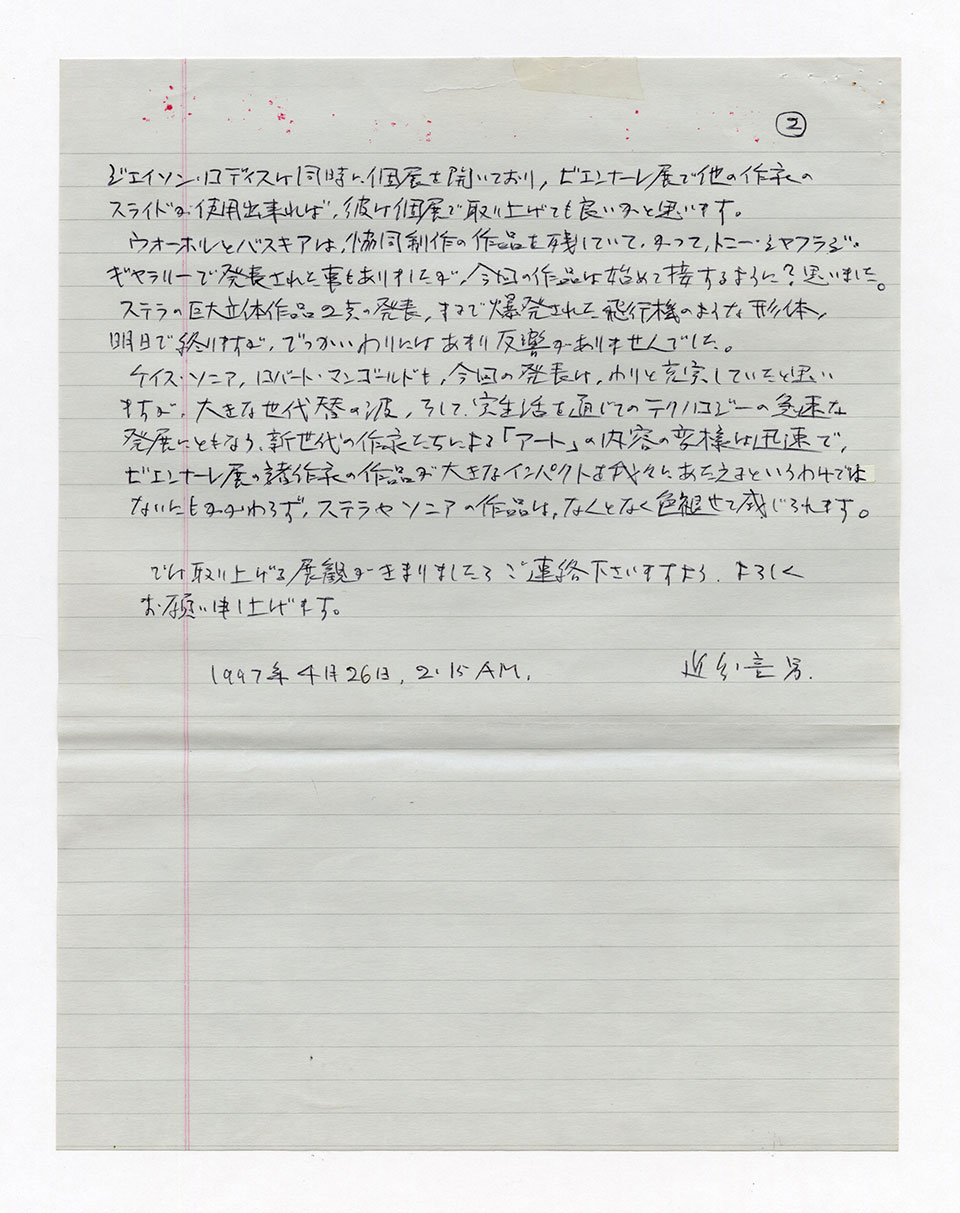 2
ジェイソン・ロディスは同時に個展を開いており、ビエンナーレ展で他の作家の
スライドが使用出来れば、彼は個展で取り上げても良いかと思います。
ウォーホルとバスキアは、協同制作の作品を残していて、かつて、トニー・シャフラジ・
ギャラリーで発表された事もありましたが、今回の作品は始めて接するように?思いました。
ステラの巨大立体作品2点の発表、まるで爆発された飛行機のような形体、
明日で終りますが、でっかいわりにはあまり反響がありませんでした。
ケイス・ソニア、ロバート・マンゴールドも、今回の発表は、わりと充実していたと思い
ますが、大きな世代替の波、そして、実生活を通じてのテクノロジーの急速な
発展にともなう、新世代の作家たちによる「アート」の内容の変様は迅速で、
ビエンナーレ展の諸作家の作品が大きなインパクトを我々にあたえるというわけでは
ないにもかかわらず、ステラやソニアの作品は、なんとなく色褪せて感じられます。
では取り上げる展観がきまりましたらご連絡下さいますよう、よろしく
お願い申し上げます。
1997年4月26日、2.15 AM.
近 男.